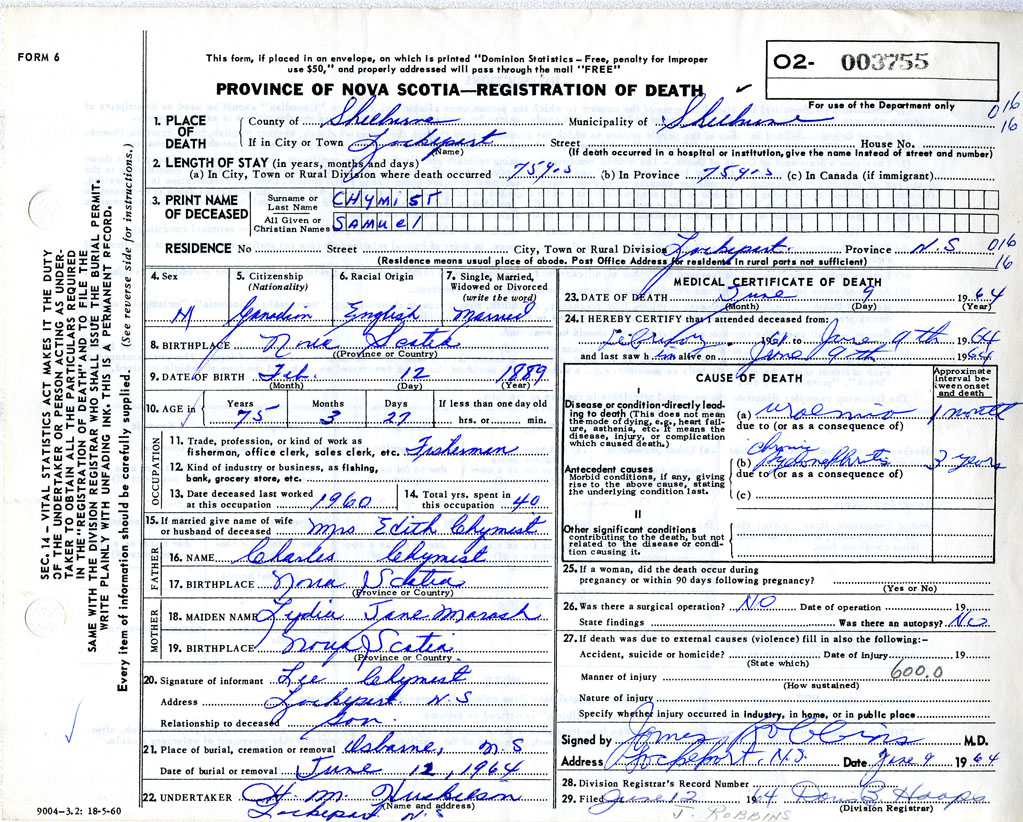 FORM 6
This form, if placed in an envelope, on which is printed "Dominion Statistics – Free, penalty for improper
use $50," and properly addressed will pass through the mail "FREE"
O2- 003755
PROVINCE OF NOVA SCOTIA—REGISTRATION OF DEATH ✓
For use of the Department only
1. PLACE OF DEATH { County of Shelburne Municipality of Shelburne 016 16
If in City or Town Lockeport (Name) Street House No.
(If death occurred in a hospital or institution, give the name instead of street and number)
2. LENGTH OF STAY (in years, months and days)
(a) In City, Town or Rural Division where death occurred 75 yrs (b) In Province 75 yrs (c) In Canada (if immigrant)
3. PRINT NAME OF DECEASED { Surname or Last Name CHYMIST
All Given or Christian Names SAMUEL
RESIDENCE No Street City, Town or Rural Division Lockeport Province N.S 016 16
(Residence means usual place of abode. Post Office Address for residents in rural parts not sufficient)
4. Sex M
5. Citizenship (Nationality) Canadian
6. Racial Origin English
7. Single, Married, Widowed or Divorced (write the word) Married
8. BIRTHPLACE Nova Scotia
(Province or Country)
9. DATE OF BIRTH Feb. 12 1889
(Month) (Day) (Year)
10. AGE in { Years 75 Months 3 Days 27 If less than one day old hrs. or min.
OCCUPATION
11. Trade, profession, or kind of work as fisherman, office clerk, sales clerk, etc. Fisherman
12. Kind of industry or business, as fishing, bank, grocery store, etc.
13. Date deceased last worked at this occupation 1960
14. Total yrs. spent in this occupation 40
15. If married give name of wife or husband of deceased Mrs Edith Chymist
FATHER
16. NAME Charles Chymist
17. BIRTHPLACE Nova Scotia
(Province or Country)
MOTHER
18. MAIDEN NAME Lydia Jane
19. BIRTHPLACE Nova Scotia
(Province or Country
20. Signature of informant Lee Chymist
Address Lockeport N.S
Relationship to deceased Son
21. Place of burial, cremation or removal Osborne, N.S
Date of burial or removal June 12, 1964
22. UNDERTAKER H. M. Huskilson
(Name and address)
Lockeport N.S
9004–3.2: 18-5-60
MEDICAL CERTIFICATE OF DEATH
23. DATE OF DEATH June 9 1964
(Month) (Day) (Year)
24. I HEREBY CERTIFY that I attended deceased from:
February 1961 to June 9th 1964
and last saw him alive on June 9th 1964
CAUSE OF DEATH
Approximate interval between onset and death
I
Disease or condition directly leading to death (This does not mean the mode of dying, e.g., heart failure, asthenia, etc. It means the disease, injury, or complication which caused death.)
(a) uraemia 1 month
due to (or as a consequence of)
Antecedent causes
Morbid conditions, if any, giving rise to the above cause, stating the underlying condition last.
(b) chronic pyelonephritis 3 years
due to (or as a consequence of)
(c)
II
Other significant conditions contributing to the death, but not related to the disease or condition causing it.
25. If a woman, did the death occur during pregnancy or within 90 days following pregnancy?
(Yes or No)
26. Was there a surgical operation? NO Date of operation 19
State findings Was there an autopsy? No
27. If death was due to external causes (violence) fill in also the following:–
Accident, suicide or homicide? Date of injury 19
(State which)
Manner of injury 600.0
(How sustained)
Nature of injury
Specify whether injury occurred in industry, in home, or in public place
Signed by James Robbins M.D.
Address Lockeport, N.S. Date June 9 1964
28. Division Registrar's Record Number
29. Filed June 12 1964
(Division Registrar)
J. ROBBINS
SEC. 14 – VITAL STATISTICS ACT MAKES IT THE DUTY
OF THE UNDERTAKER OR PERSON ACTING AS UNDER-
TAKER TO OBTAIN ALL THE PARTICULARS REQUIRED
IN THE "REGISTRATION OF DEATH" AND TO FILE THE
SAME WITH THE DIVISION REGISTRAR WHO SHALL ISSUE THE BURIAL PERMIT.
WRITE PLAINLY WITH UNFADING INK. THIS IS A PERMANENT RECORD.
Every item of information should be carefully supplied. (See reverse side for instructions.)